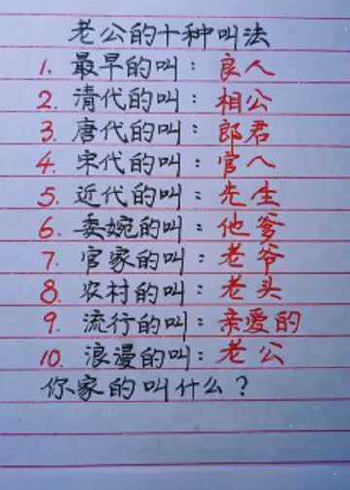 老公的十种叫法
1. 最早的叫：良人
2. 清代的叫：相公
3. 唐代的叫：郎君
4. 宋代的叫：官人
5. 近代的叫：先生
6. 委婉的叫：他爹
7. 官家的叫：老爷
8. 农村的叫：老头
9. 流行的叫：亲爱的
10. 浪漫的叫：老公
你家的叫什么？